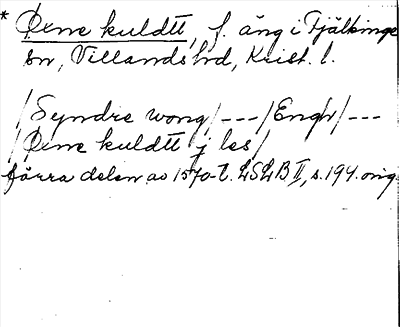 * Øxne kuldtt, f. äng i Fjälkinge
sn, Villands hd, Krist. l.
/Syndre wong/ --- /Engh/ ---
/Øxne kuldtt j les/
förra delen av 1570-t. LSLB II, s. 194. orig